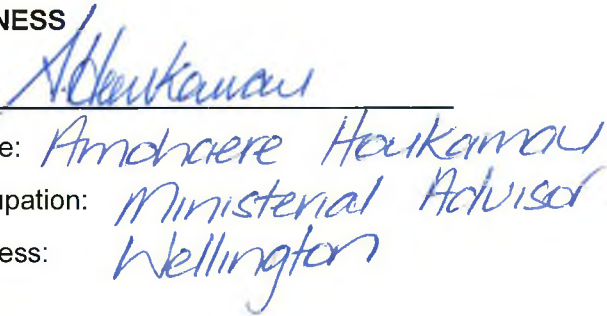 NESS
AHoukamau
e: Amohaere Houkamau
upation: Ministerial Advisor
ess: Wellington